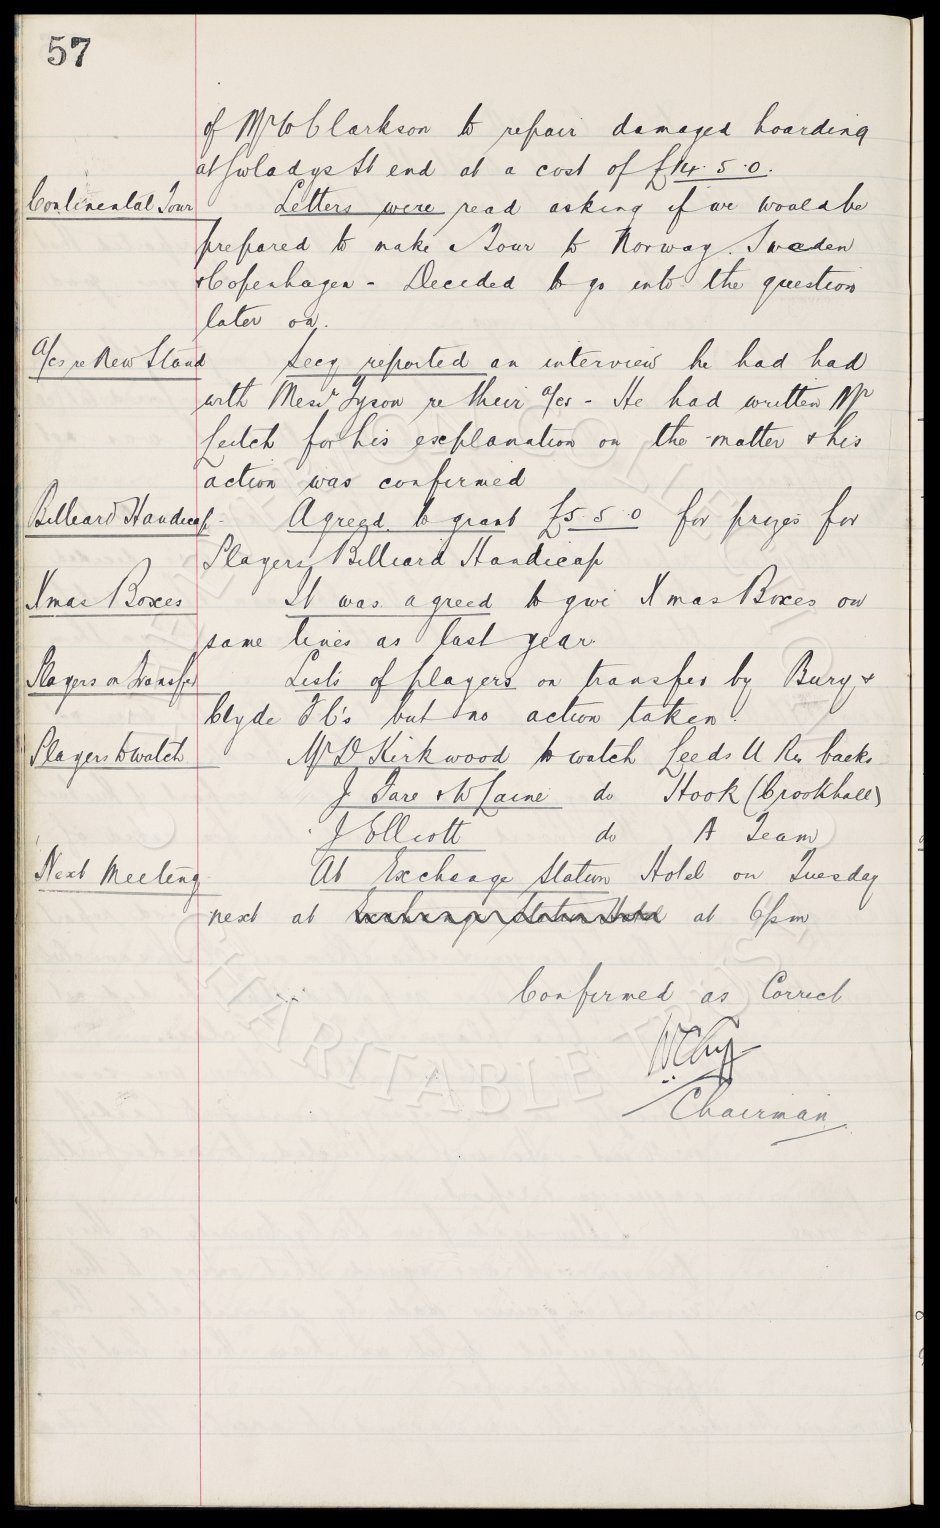 57
of Mr W Clarkson to repair damaged hoarding
at Gwladys St end at a cost of £14. 5. 0.
Continental Tour Letters were read asking if we would be
prepared to make a Tour to Norway. Sweden
& Copenhagen - Decided to go into the question
later on.
a/cs re New Stand Secy reported an interview he had had
with Messrs Tyson re their a/cs - He had written Mr
Leitch for his explanation on the matter & his
action was confirmed
Billiard Handicap - Agreed to grant £5. 5. 0 for prizes for
Players Billiard Handicap
Xmas Boxes It was agreed to give Xmas Boxes on
same lines as last year.
Players on Transfer Lists of players on transfer by Bury &
Clyde FC's but no action taken.
Players to watch Mr D Kirkwood to watch Leeds U Res backs
J Tare & W Laine do Hook (Crookhall)
J Elliott do A Team
Next Meeting At Exchange Station Hotel on Tuesday
next at Exchange Station Hotel at 6pm
Confirmed as Correct
Chairman
LIVERPOOL COLLECTION
CHARITABLE TRUST